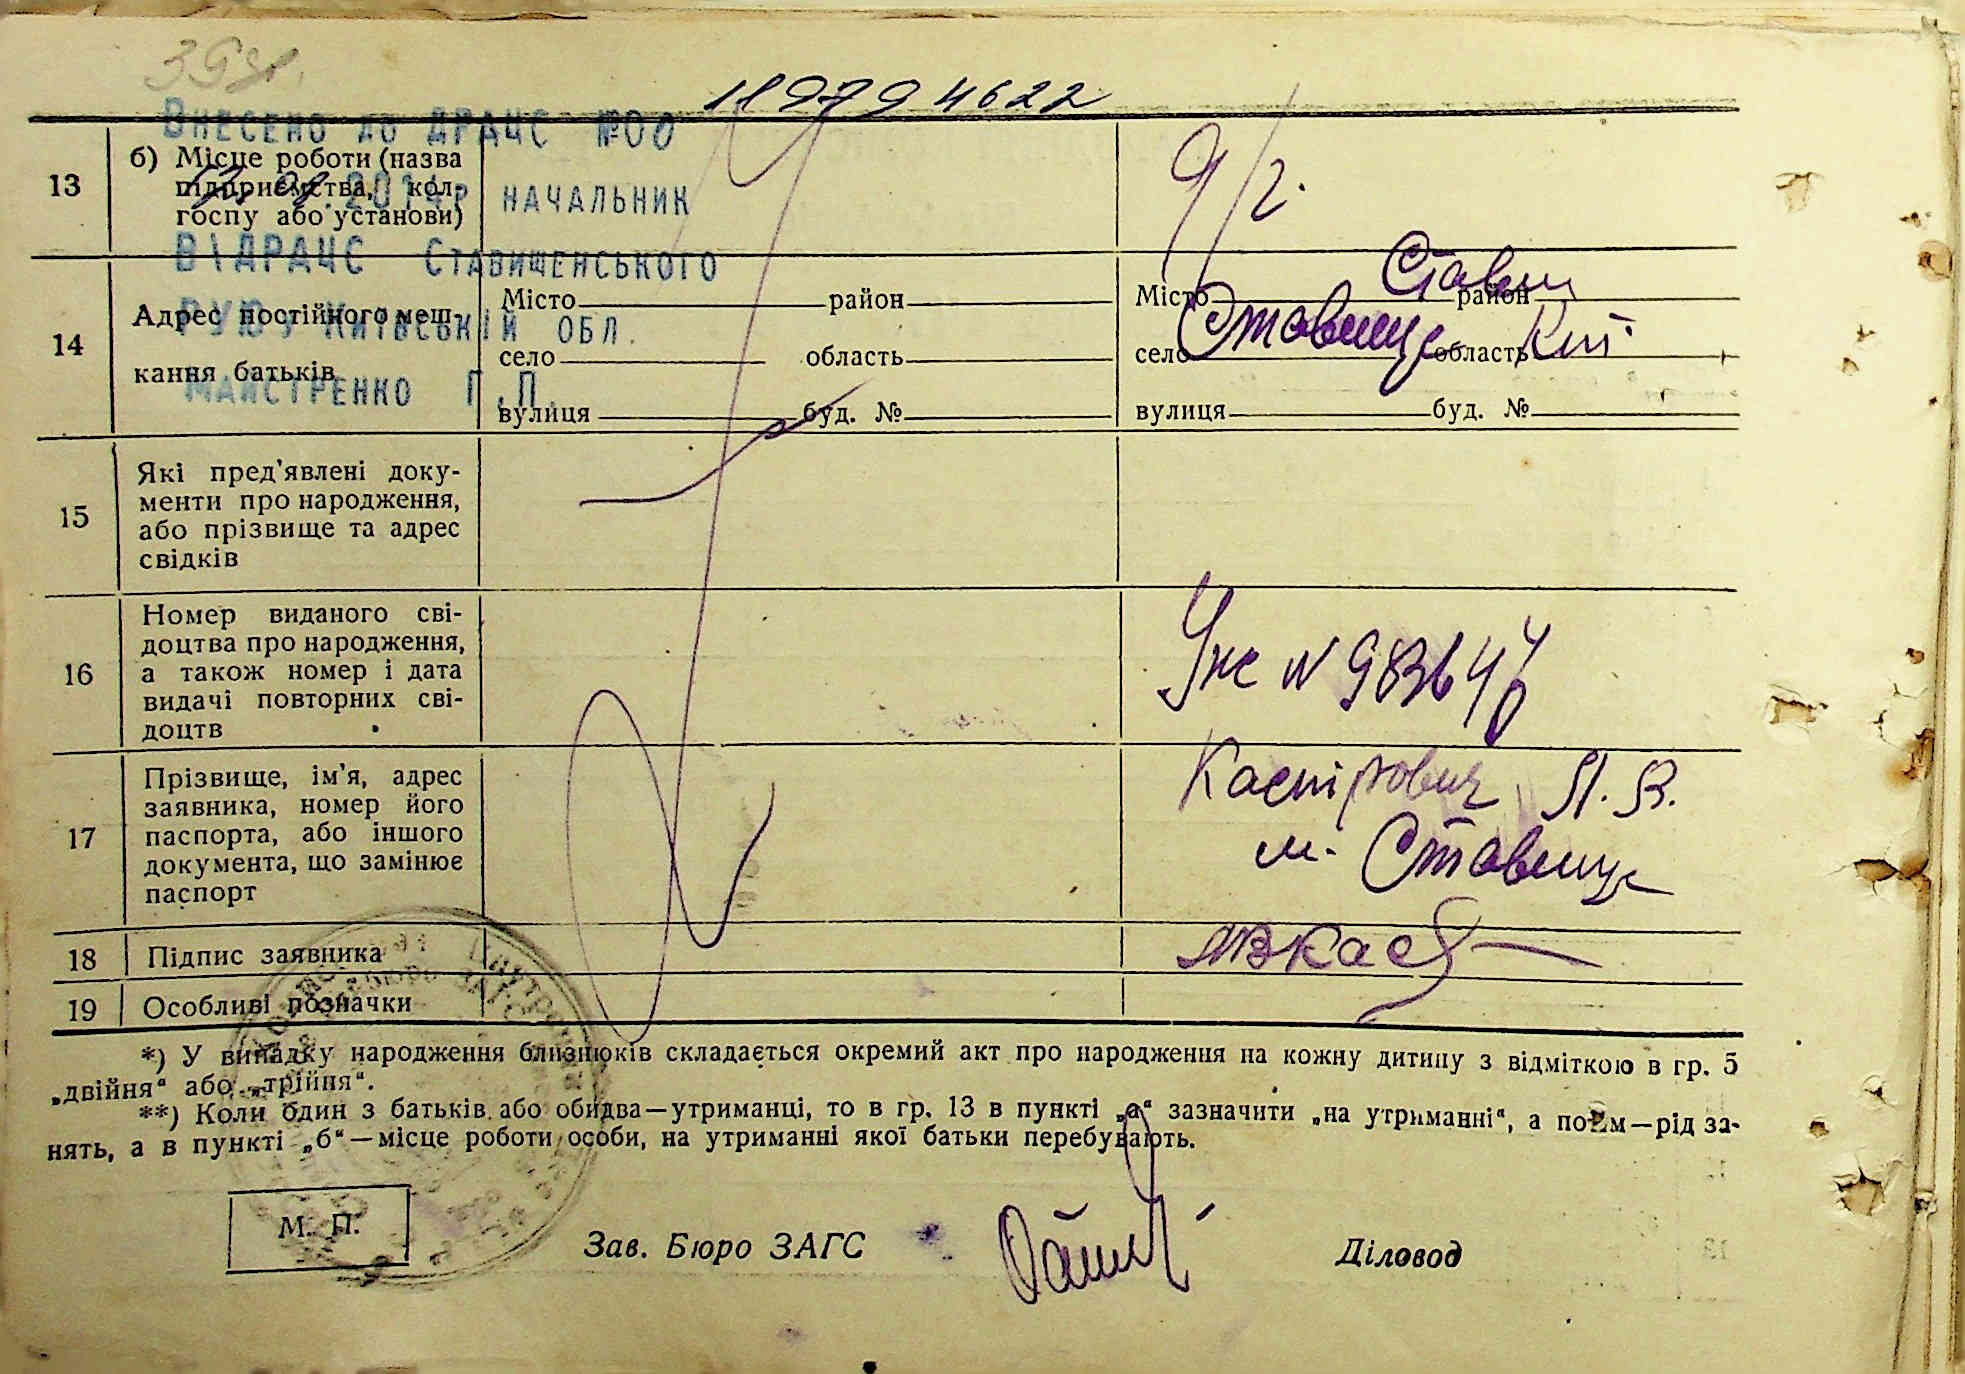 11979 4622
Внесено до ДРАЦС №00
13
б) Місце роботи (назва
підприємства, кол-
госпу або установи)
д/г.
2014р начальник
В\ДРАЦС Ставищенського
РУЮ, Київській обл.
Майстренко Г.П.
14
Адрес постійного меш-
кання батьків
Місто район
село область
вулиця буд. №
Місто район Стави
село Ставище область Киї
вулиця буд. №
15
Які пред'явлені доку-
менти про народження,
або прізвище та адрес
свідків
16
Номер виданого сві-
доцтва про народження,
а також номер і дата
видачі повторних сві-
доцтв
N 983644
17
Прізвище, ім'я, адрес
заявника, номер його
паспорта, або іншого
документа, що замінює
паспорт
Каспірович Я. В.
м. Ставище
18 Підпис заявника
ЯВКас
19 Особливі позначки
*) У випадку народження близнюків складається окремий акт про народження на кожну дитину з відміткою в гр. 5
„двійня“ або „трійня“.
**) Коли один з батьків або обидва—утриманці, то в гр. 13 в пункті „а“ зазначити „на утриманні“, а потім—рід за-
нять, а в пункті „б“—місце роботи особи, на утриманні якої батьки перебувають.
М. П.
Зав. Бюро ЗАГС
Діловод